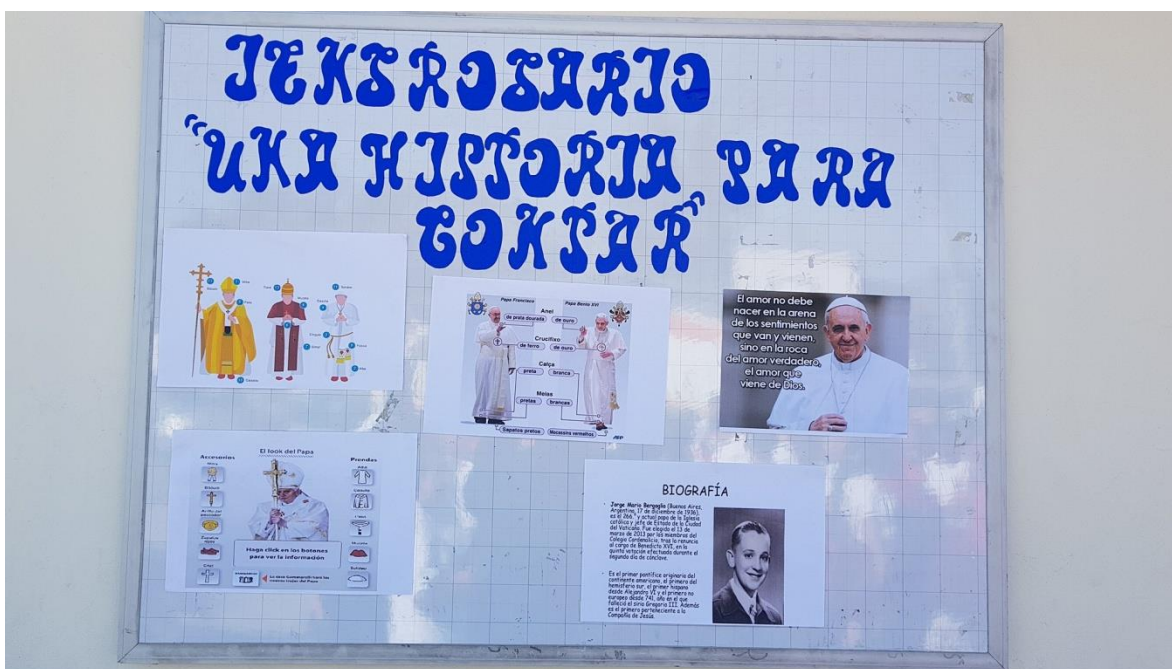 IENS ROSARIO
"UNA HISTORIA PARA
CONTAR"
Papa Francisco
Papa Bento XVI
Anel
de prata dourada
de ouro
Crucifixo
de ferro
de ouro
Calça
preta
branca
Meias
pretas
brancas
Sapatos pretos
Mocassins vermelhos
AFP
El amor no debe
nacer en la arena
de los sentimientos
que van y vienen,
sino en la roca
del amor verdadero,
el amor que
viene de Dios.
El look del Papa
Accesorios
Prendas
Mitra
Báculo
Zapatos
Cruz
Alba
Casulla
Muceta
Solideo
Haga click en los botones
para ver la información
BIOGRAFÍA
Jorge Mario Bergoglio (Buenos Aires,
Argentina, 17 de diciembre de 1936),
es el 266.° y actual papa de la Iglesia
católica y jefe de Estado de la Ciudad
del Vaticano. Fue elegido el 13 de
marzo de 2013 por los miembros del
Colegio Cardenalicio, tras la renuncia
al cargo de Benedicto XVI, en la
quinta votación efectuada durante el
segundo día de cónclave.
Es el primer pontífice originario del
continente americano, el primero del
hemisferio sur, el primer hispano
desde Alejandro VI y el primero no
europeo desde 741, año en el que
falleció el sirio Gregorio III. Además
es el primero perteneciente a la
Compañía de Jesús.